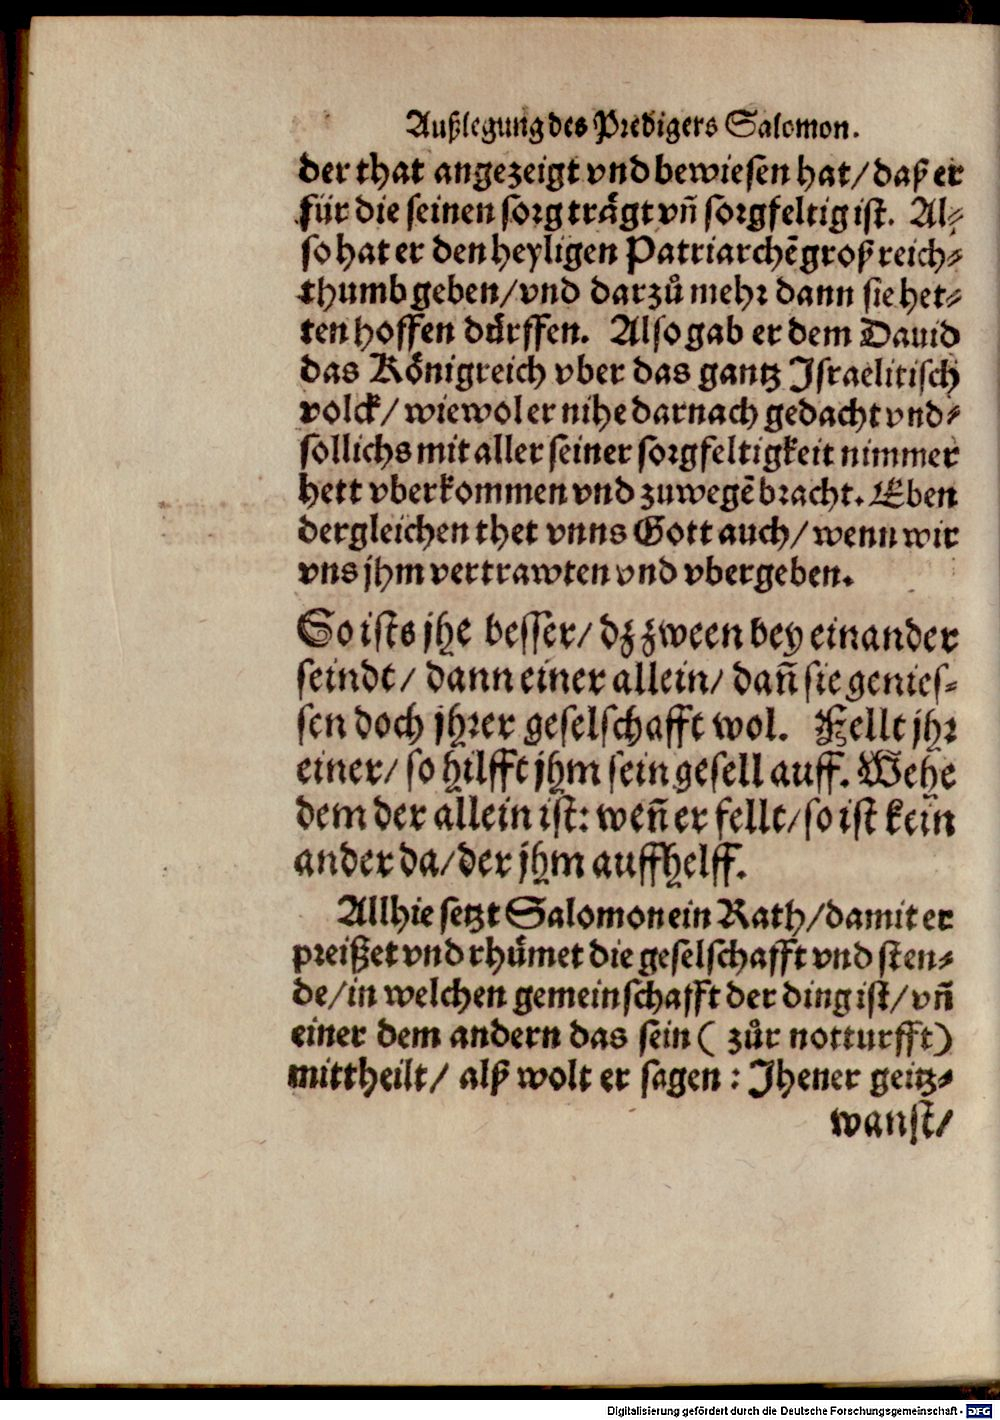 Außlegung des Predigers Salomon.
der that angezeigt vnd bewiesen hat/ daß er
für die seinen sorg trägt vñ sorgfeltig ist. Al-
so hat er den heyligen Patriarchẽ groß reich-
thumb geben/ vnd darzů mehr dann sie het-
ten hoffen dürffen. Also gab er dem Dauid
das Königreich vber das gantz Jsraelitisch
volck/ wiewol er nihe darnach gedacht vnd-
sollichs mit aller seiner sorgfeltigkeit nimmer
hett vberkommen vnd zuwegẽ bracht. Eben
dergleichen thet vnns Gott auch/ wenn wir
vns jhm vertrawten vnd vbergeben.
So ists jhe besser/ dz zween bey einander
seindt/ dann einer allein/ dañ sie genies-
sen doch jhrer geselschafft wol. Fellt jhr
einer/ so hilfft jhm sein gesell auff. Wehe
dem der allein ist: weñ er fellt/ so ist kein
ander da/ der jhm auffhelff.
Allhie setzt Salomon ein Rath/ damit er
preißet vnd rhümet die geselschafft vnd sten-
de/ in welchen gemeinschafft der ding ist/ vñ
einer dem andern das sein ( zůr notturfft)
mittheilt/ alß wolt er sagen : Jhener geitz-
wanst/
Digitalisierung gefördert durch die Deutsche Forschungsgemeinschaft - DFG